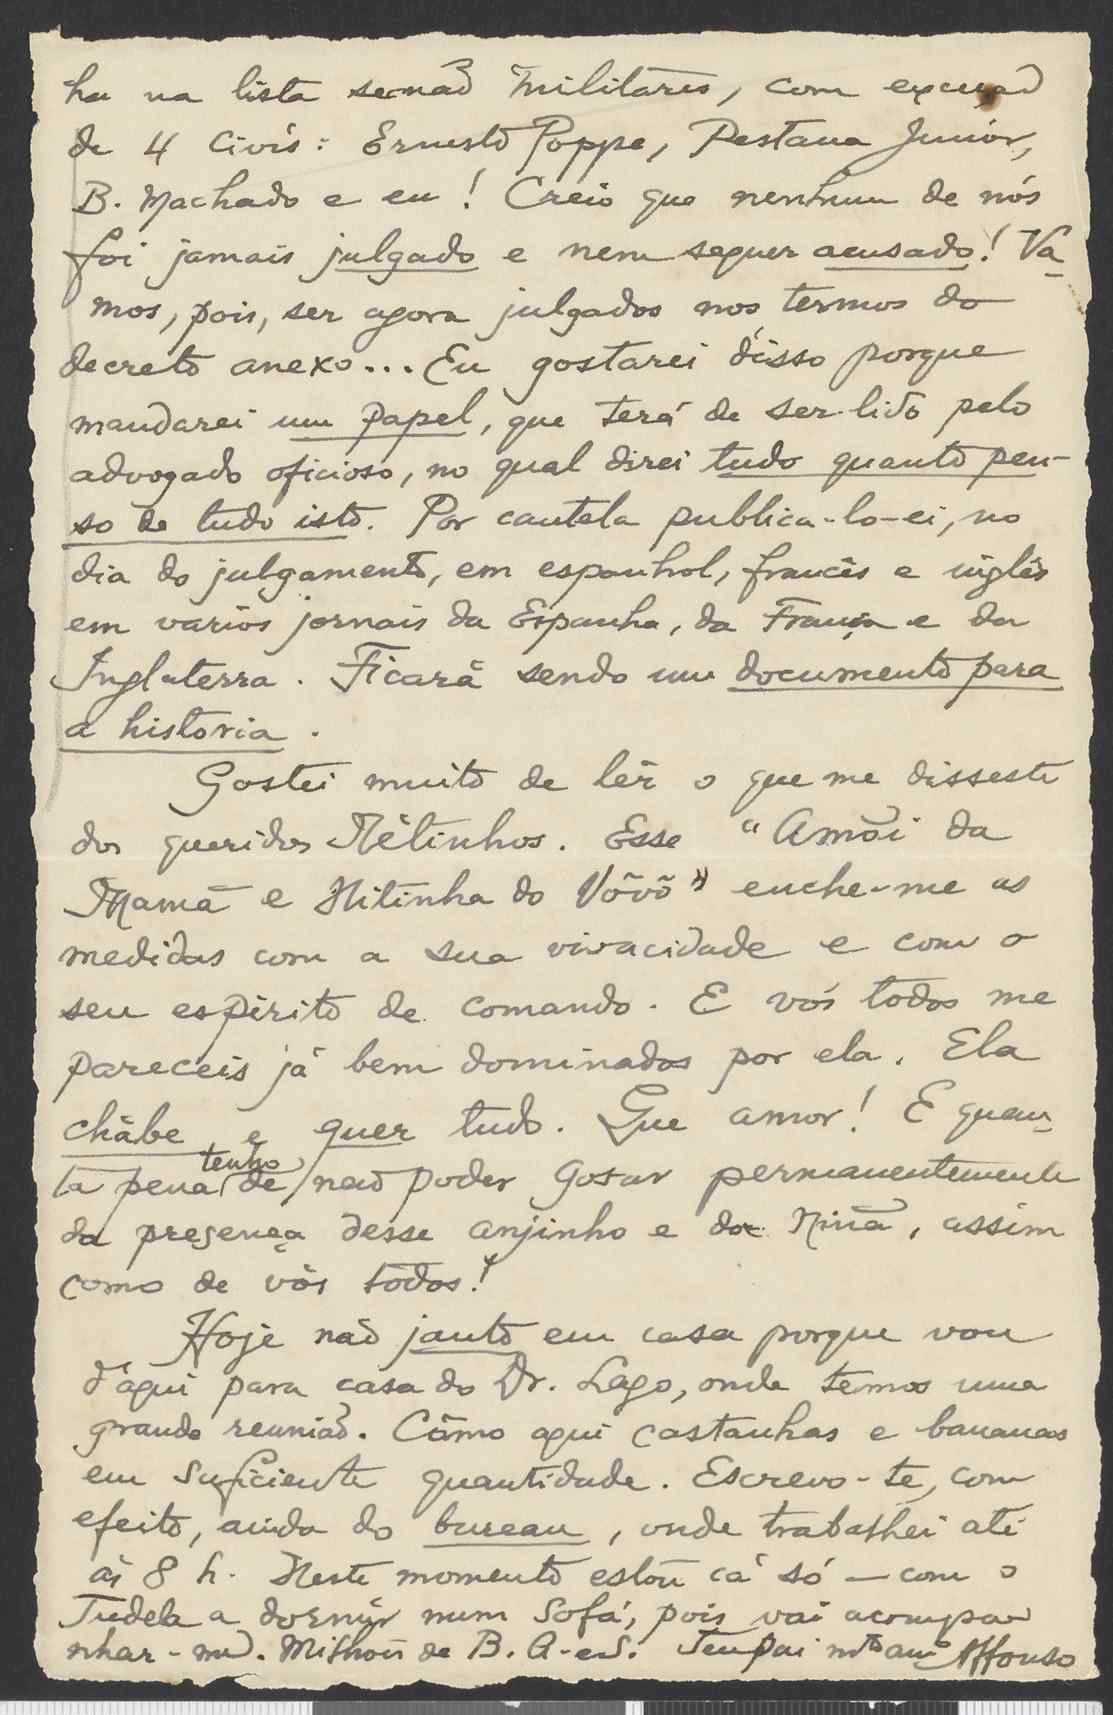 ha na lista senaõ militares, com exceçaõ
de 4 civis: Ernesto Poppe, Pestana Junior,
B. Machado e eu! Creio que nenhum de nós
foi jamais julgado e nem sequer acusado! Va-
mos, pois, ser agora julgados nos termos do
decreto anexo... Eu gostarei disso porque
mandarei um papel, que terá de ser lido pelo
advogado oficioso, no qual direi tudo quanto pen-
so de tudo isto. Por cautela publica-lo-ei, no
dia do julgamento, em espanhol, francês e inglês
em varios jornais da Espanha, da França e da
Inglaterra. Ficará sendo um documento para
a historia.
Gostei muito de lêr o que me disseste
dos queridos Nétinhos. Esse "Amôi da
Mamã e Nitinha do Vôvô" enche-me as
medidas com a sua vivacidade e com o
seu espirito de comando. E vós todos me
pareceis já bem dominados por ela. Ela
châbe e quer tudo. Que amor! E quan-
ta pena tenho de naõ poder gosar permanentemente
da presença desse anjinho e da Ninã, assim
como de vós todos!
Hoje naõ janto em casa porque vou
d'aqui para casa do Dr. Lago, onde temos uma
grande reuniaõ. Cômo aqui castanhas e bananas
em suficiente quantidade. Escrevo-te, com
efeito, ainda do bureau, onde trabalhei até
ás 8 h. Neste momento estou cá só — com o
Tudela a dormir num sofá, pois vai acompa-
nhar-me. Milhões de B. A. e S. Teu pai mto amo Affonso